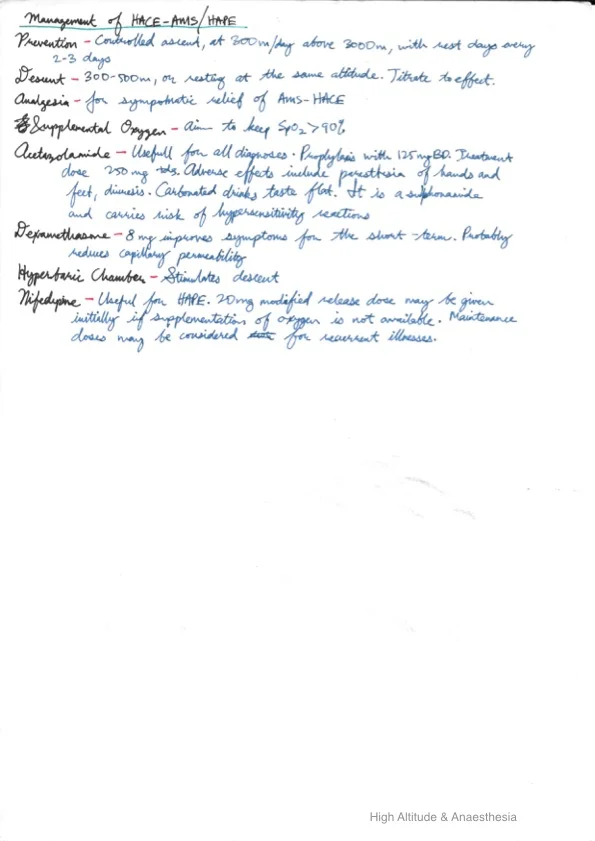 Management of HACE-AMS/HAPE
Prevention - Controlled ascend, at 300m/day above 3000m, with rest days every
2-3 days
Descent - 300-500m, or resting at the same altitude. Titrate to effect.
Analgesia - for sympomatic relief of AMS-HACE
Supplemental Oxygen - aim to keep SpO2 > 90%
Acetazolamide - Usefull for all diagnoses. Prophylaxis with 125mg BD. Treatment
dose 250 mg tds. Adverse effects include paresthsia of hands and
feet, diuresis. Carbonated drinks taste flat. It is a sulphonamide
and carries risk of hypersensitivity reactions
Dexamethasone - 8 mg improves symptoms for the short-term. Probably
reduces capillary permeability
Hyperbaric Chamber - Stimulates descent
Nifedipine - Useful for HAPE. 20mg modified release dose may be given
initially if supplementation of oxygen is not available. Maintenance
doses may be considered for recurrent illnesses.
High Altitude & Anaesthesia